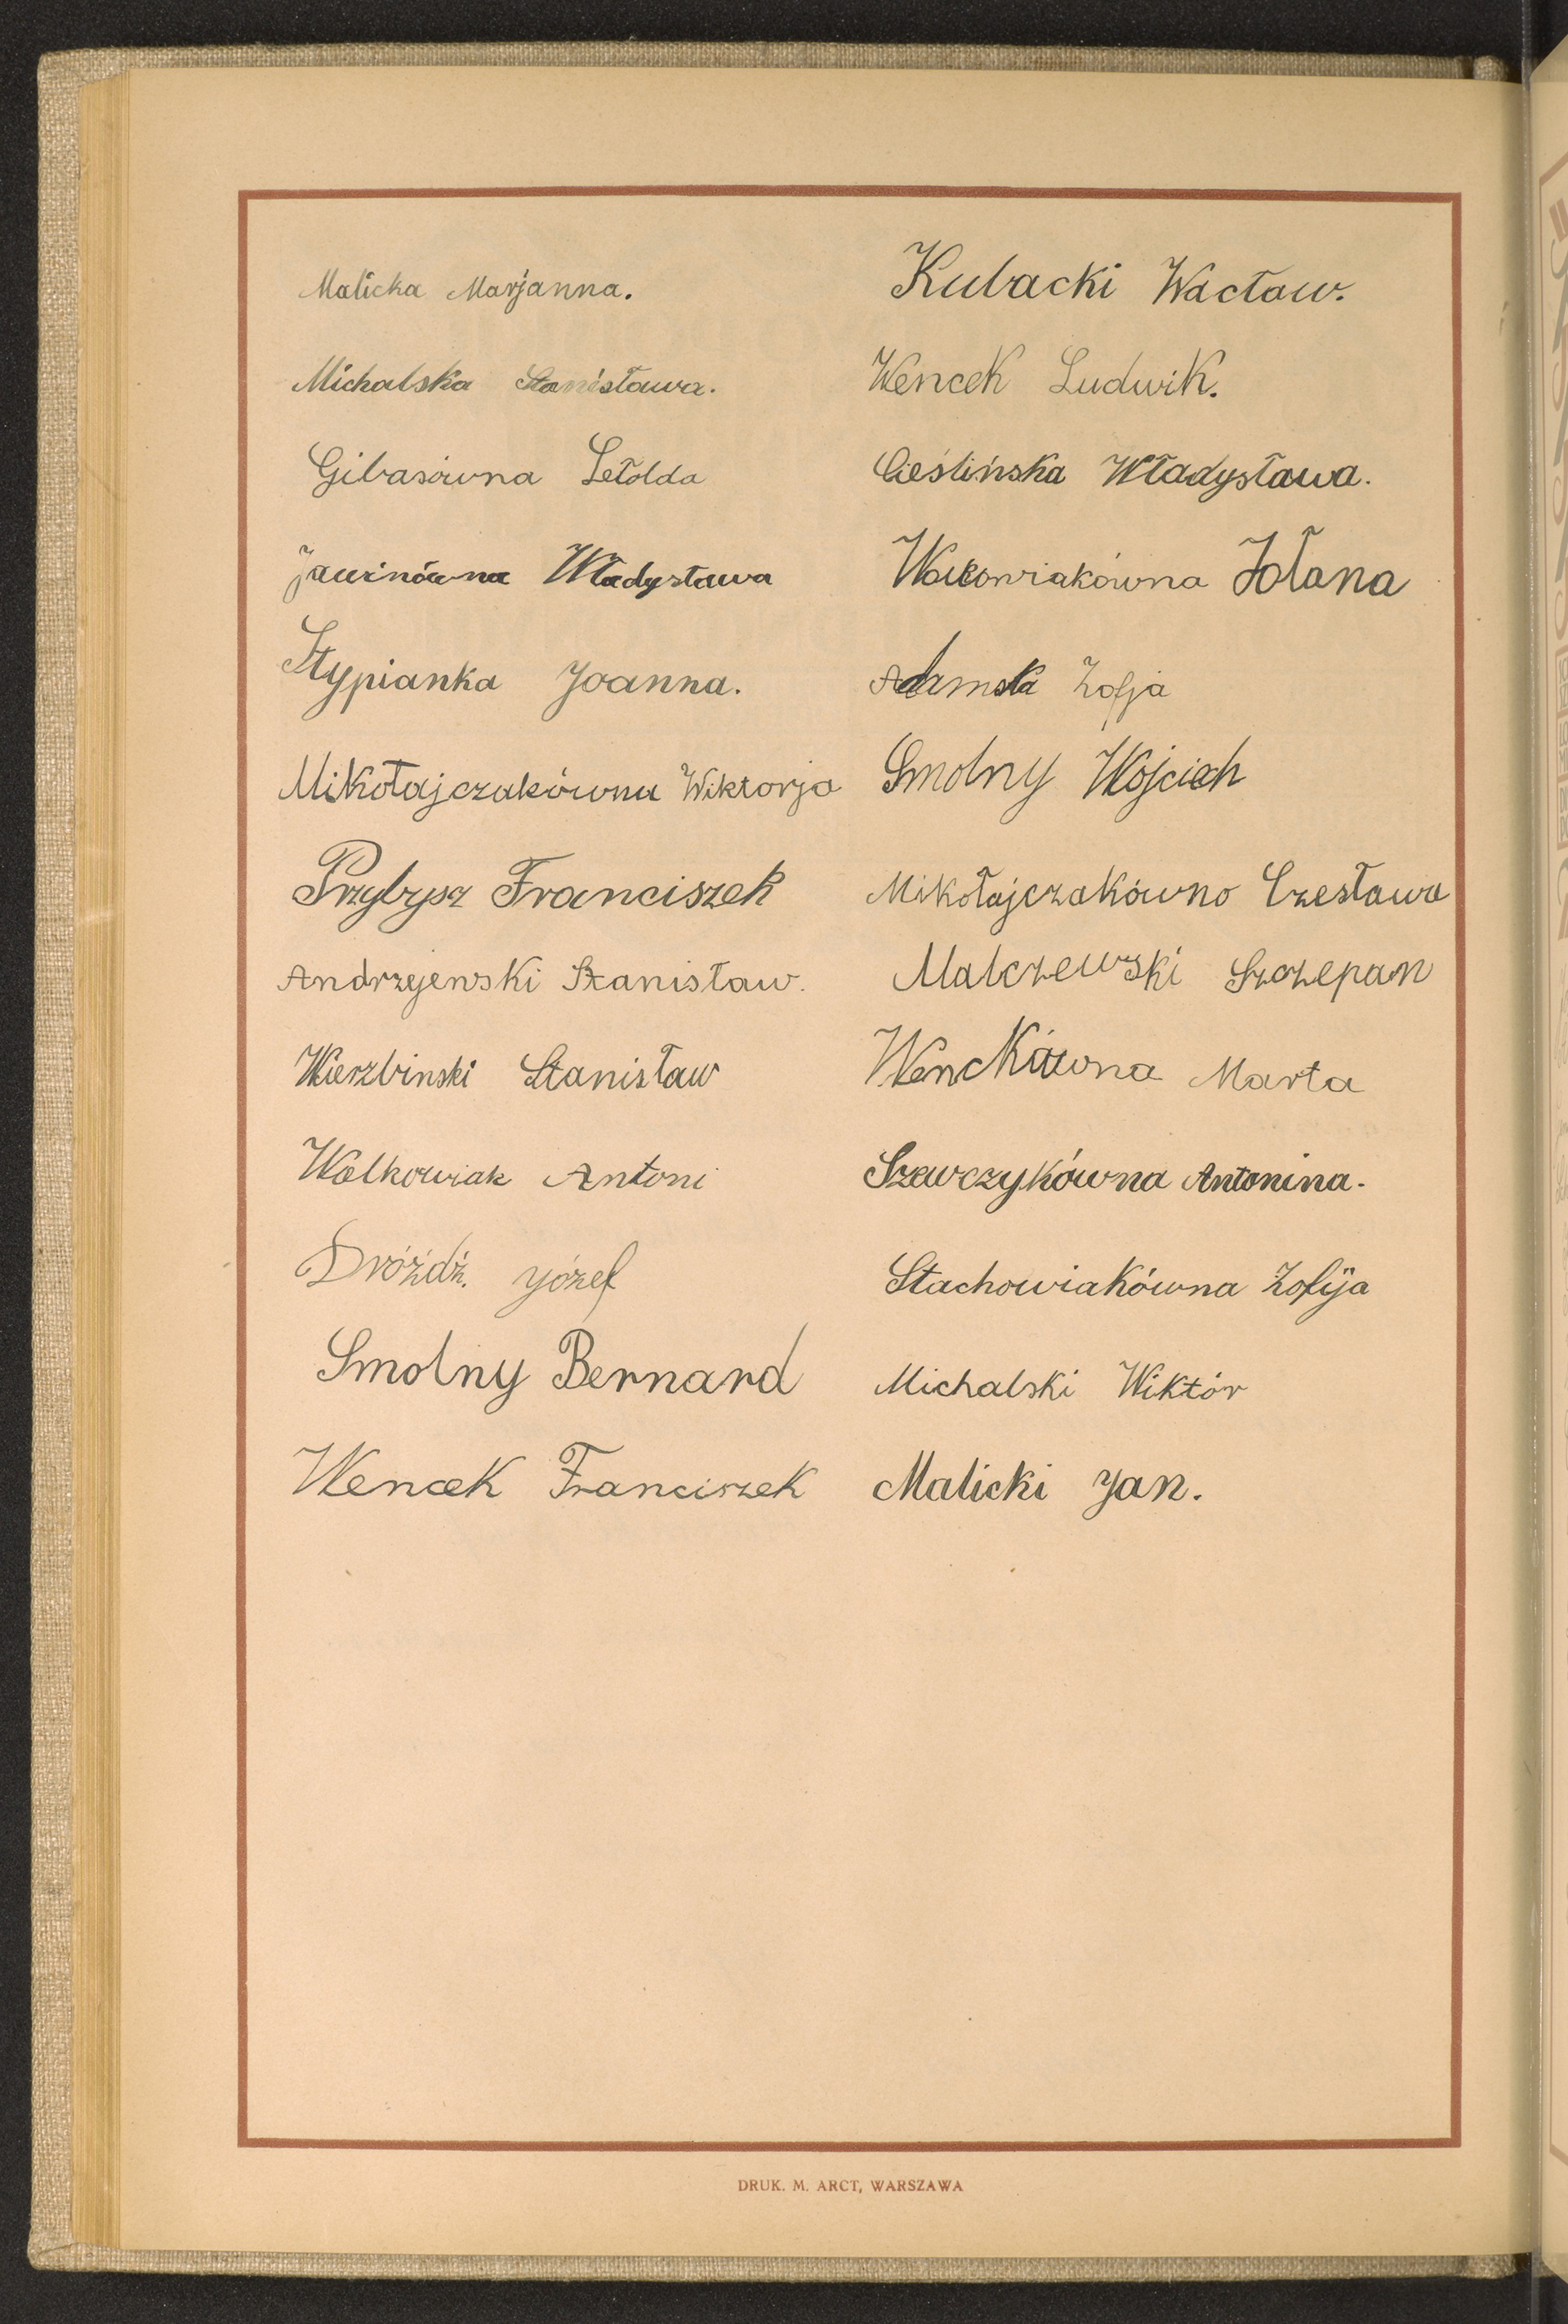 Malicka Marjanna.
Michalska Stanisława.
Gibasówna Setołda
Jawinówna Władysława
Stypianka Joanna.
Mikołajczakówna Wiktorja
Przybysz Franciszek
Andrzejewski Stanisław.
Wierzbinski Stanisław
Walkowiak Antoni
Dróżdż. Józef
Smolny Bernard
Wencek Franciszek
Kubacki Wacław.
Wencek Ludwik.
Cieślińska Władysława.
Jołana
Adamska Zofja
Smolny Wojciech
Mikołajczakówno Czesława
Malczewski Szczepan
Wenckówna Marta
Szewczykówna Antonina.
Stachowiakówna Zofija
Michalski Wiktór
Malicki Jan.
DRUK. M. ARCT, WARSZAWA